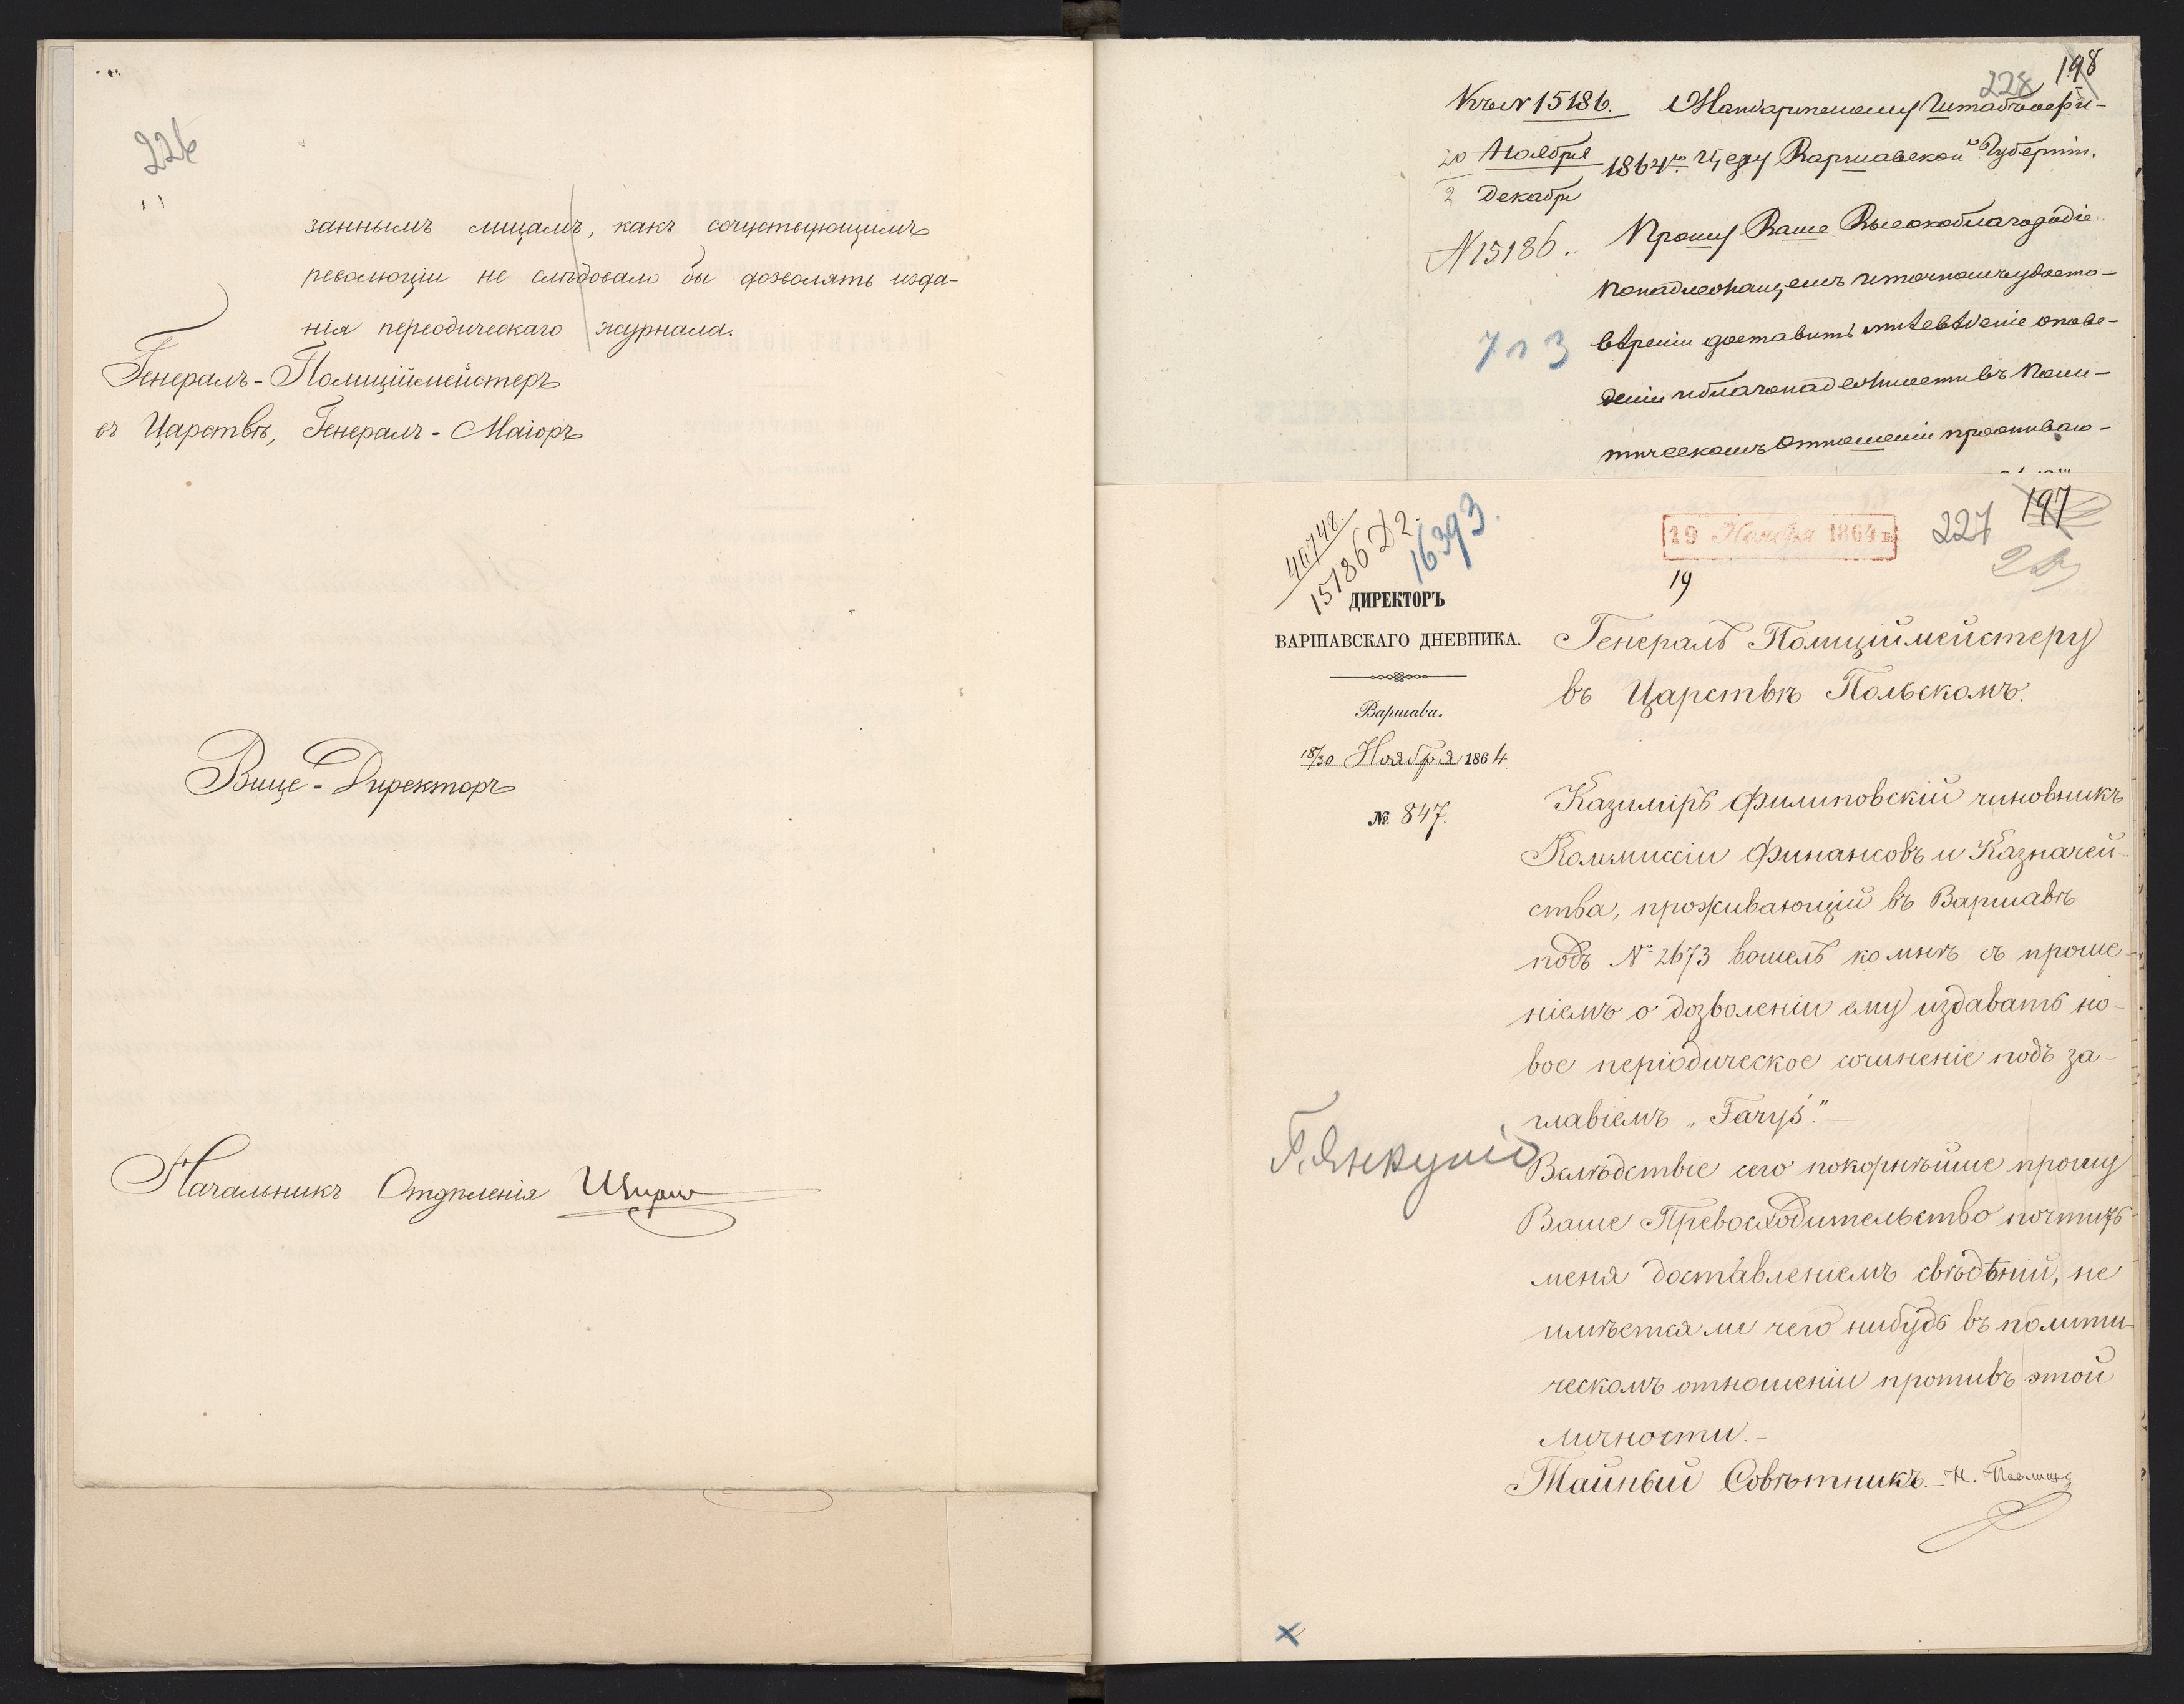 226
заннымъ лицамъ, какъ сочуствующимъ
революціи не слѣдовало бы дозволять изда-
нія переодическаго журнала.
Генералъ-Полиціймейстеръ
въ Царствѣ, Генералъ-Маіоръ
Вице-Директоръ
Начальникъ Отдѣленія
228 198
Къ № 15186. Жандармскому Штабъ офи-
20 Ноября
2 Декабр 1864 го. церу Варшавской Губерніи.
N 15186. Прошу Ваше Высокоблагородіе
о надлежащемъ и точномъ удосто-
вѣреніи доставить мнѣ свѣденіе о пове-
деніи и благонадежности въ поли-
тическомъ отношеніи проживаю-
713
40748.
15186 Д2.
16393.
19 Ноября 1864 г.
19
227 197
ДИРЕКТОРЪ
ВАРШАВСКАГО ДНЕВНИКА.
Варшава.
18/30 Ноября 1864
№ 847.
Генералъ Полиціймейстеру
въ Царствѣ Польскомъ.
Казиміръ Филиповскій чиновникъ
Коммиссіи Финансовъ и Казначей-
ства, проживающій въ Варшавѣ
подъ № 2673 вошелъ ко мнѣ съ проше-
ніемъ о дозволеніи ему издавать но-
вое періодическое сочиненіе подъ за-
главіемъ „Tarys".
Вслѣдствіе сего покорнѣйше прошу
Ваше Превосходительство почтить
меня доставленіемъ свѣдѣній, не
имѣется ли чего нибудь въ полити-
ческомъ отношеніи противъ этой
личности.
Тайный Совѣтникъ. Н. Павлищ